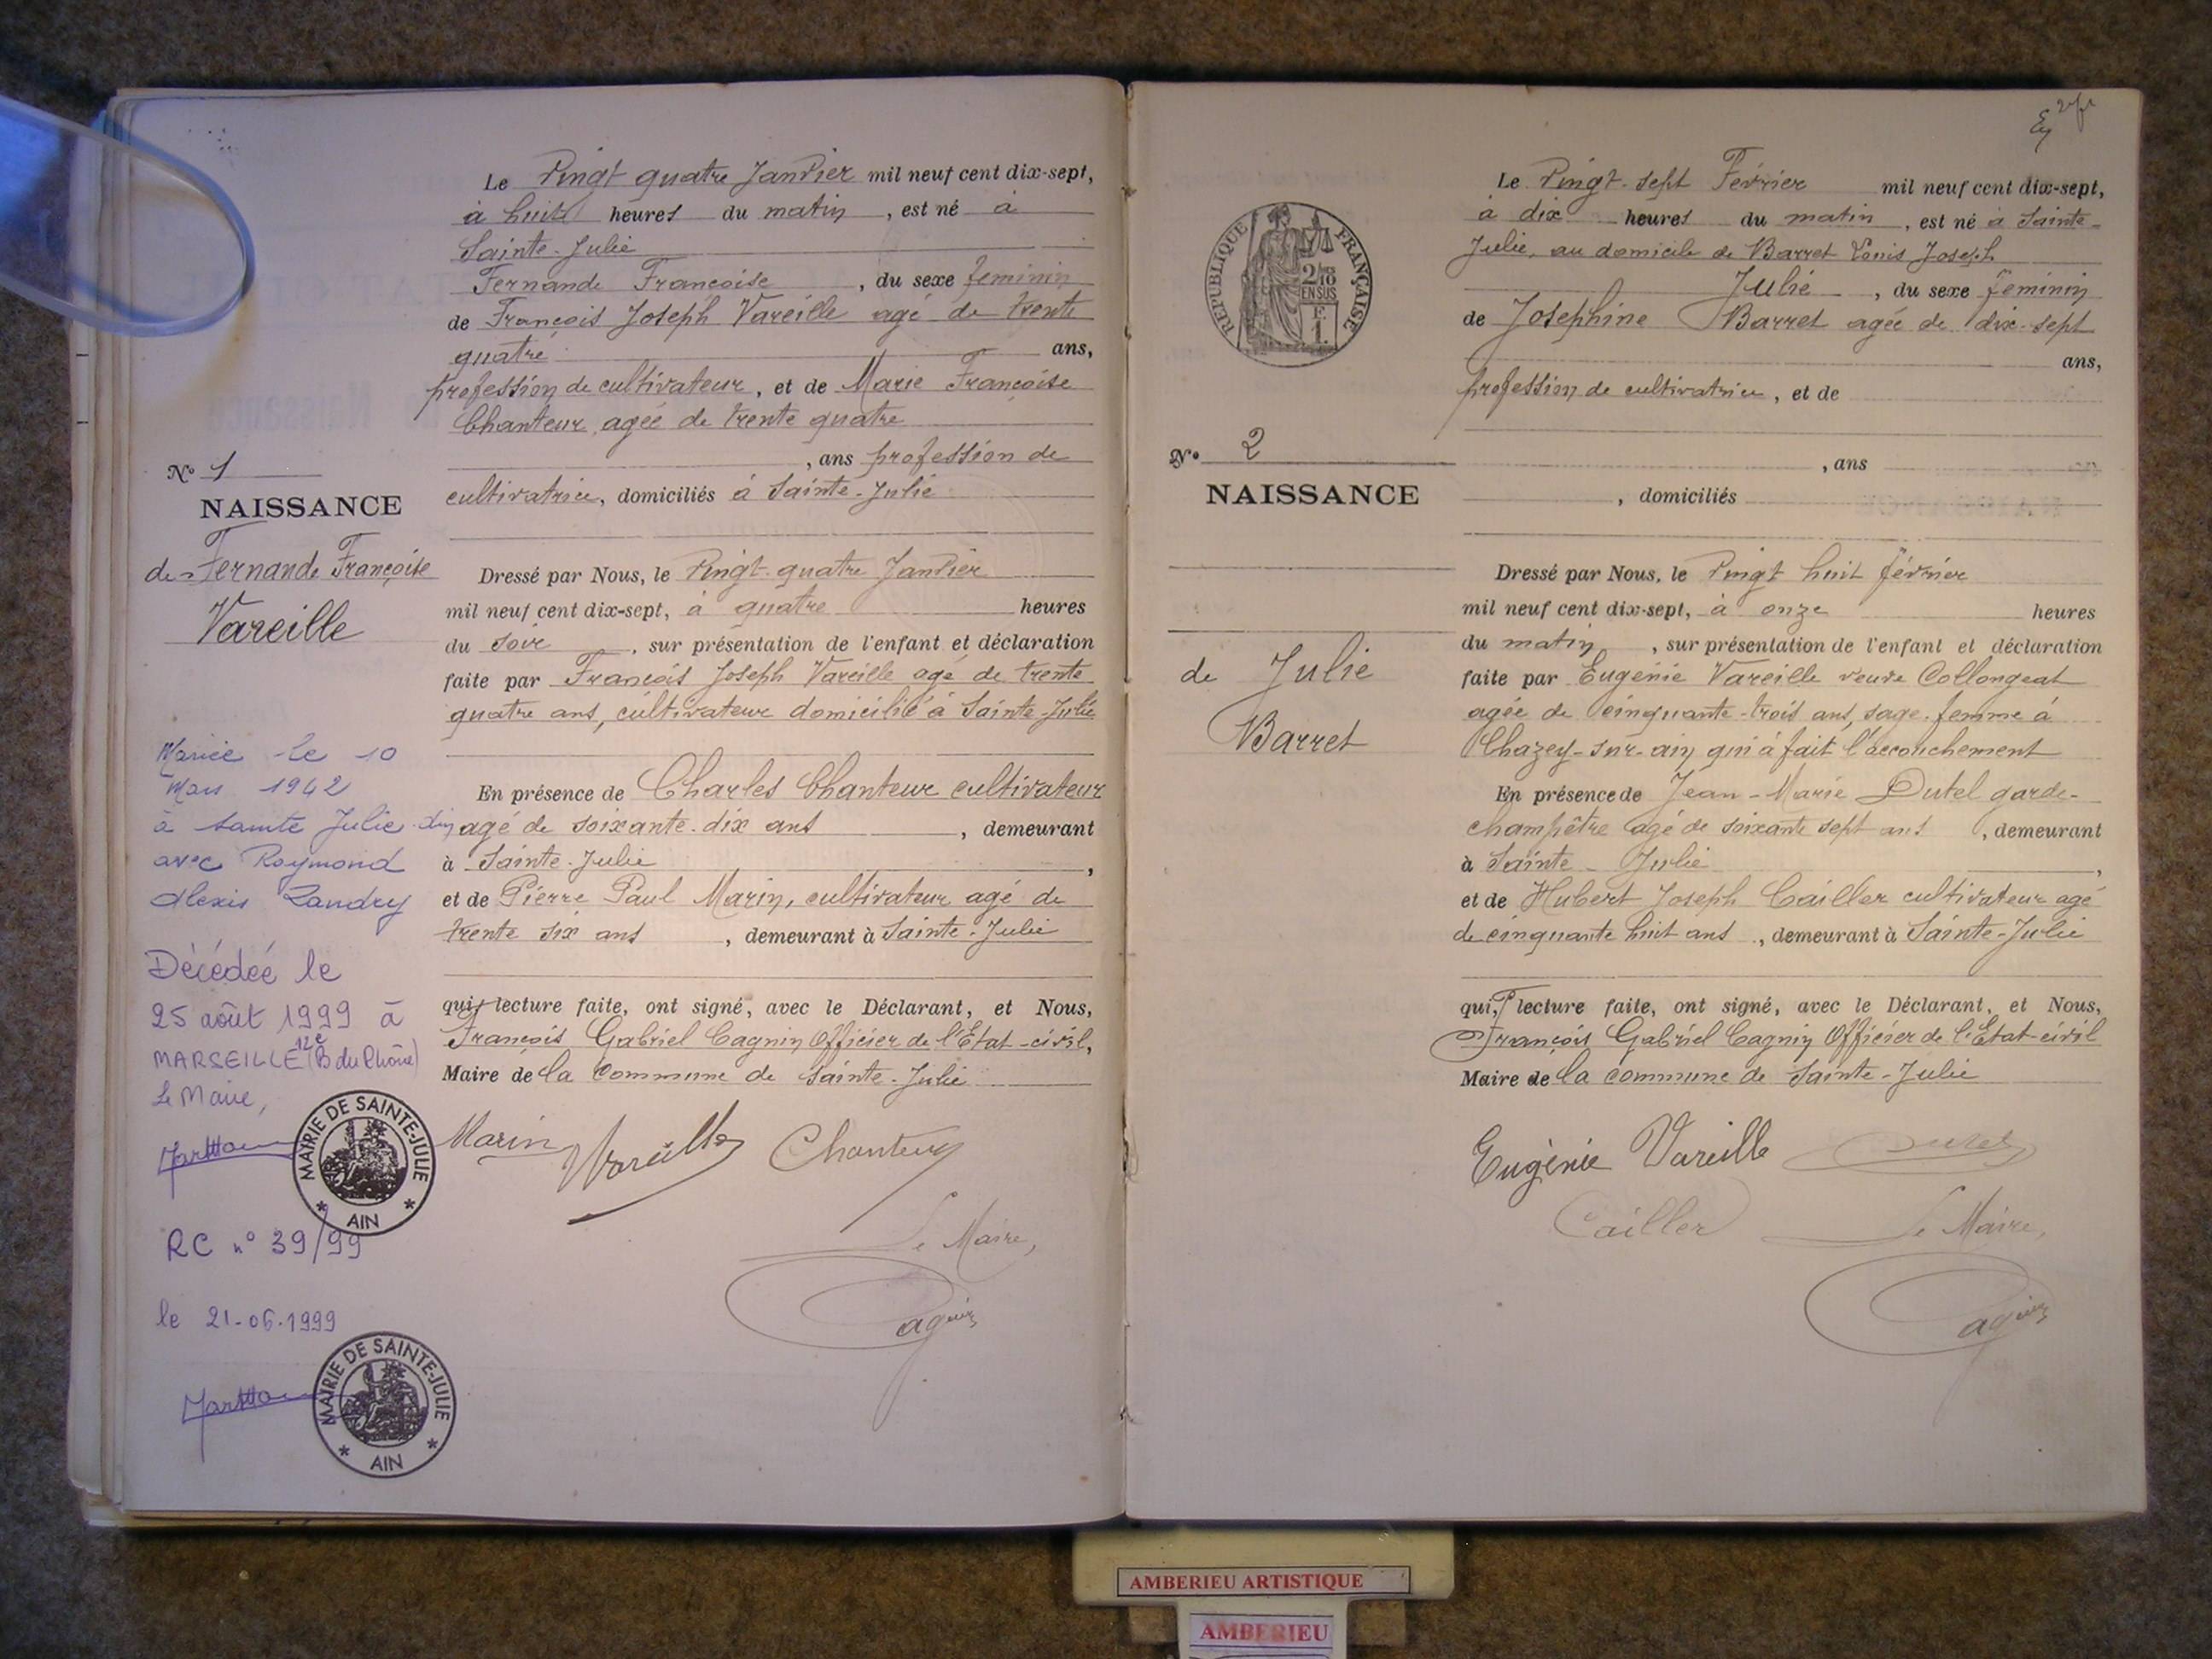 Le Vingt quatre Janvier mil neuf cent dix-sept,
à huit heures du matin, est né à
Sainte-Julie
Fernande Françoise, du sexe feminin
de François Joseph Vareille agé de trente
quatre ans,
profession de cultivateur, et de Marie Françoise
Chanteur, agée de trente quatre
, ans profession de
cultivatrice, domiciliés à Sainte-Julie
N° 1
NAISSANCE
de Fernande Françoise
Vareille
Dressé par Nous, le Vingt-quatre Janvier
mil neuf cent dix-sept, à quatre heures
du soir, sur présentation de l'enfant et déclaration
faite par François Joseph Vareille agé de trente
quatre ans, cultivateur domicilié à Sainte-Julie
En présence de Charles Chanteur cultivateur
agé de soixante-dix ans, demeurant
à Sainte-Julie,
et de Pierre Paul Marin, cultivateur agé de
trente six ans, demeurant à Sainte-Julie
qui, lecture faite, ont signé, avec le Déclarant, et Nous,
François Gabriel Cagnin Officier de l'Etat-civil,
Maire de la Commune de Sainte-Julie
Mariée le 10
Mars 1942
à Sainte Julie
avec Raymond
Alexis Landry
Décédée le
25 août 1999 à
MARSEILLE 12e (B du Rhône)
Le Maire,
MAIRIE DE SAINTE-JULIE
* AIN *
RC n° 39/99
le 21-06-1999
MAIRIE DE SAINTE-JULIE
* AIN *
Marin Vareille Chanteur
Le Maire,
Cagnin
2
Le Vingt-sept Février mil neuf cent dix-sept,
à dix heures du matin, est né à Sainte-
Julie, au domicile de Barret Louis Joseph
Julie, du sexe feminin
de Josephine Barret agée de dix-sept
ans,
profession de cultivatrice, et de
, ans
, domiciliés
RÉPUBLIQUE FRANÇAISE
2/10
EN SUS
F.
1.
N° 2
NAISSANCE
de Julie
Barret
Dressé par Nous, le Vingt huit février
mil neuf cent dix-sept, à onze heures
du matin, sur présentation de l'enfant et déclaration
faite par Eugénie Vareille veuve Collongeat
agée de cinquante-trois ans, sage-femme à
Chazey-sur-ain qui à fait l'accouchement
En présence de Jean-Marie Dutel garde-
champêtre agé de soixante sept ans, demeurant
à Sainte-Julie,
et de Hubert Joseph Cailler cultivateur agé
de cinquante huit ans, demeurant à Sainte-Julie
qui, lecture faite, ont signé, avec le Déclarant, et Nous,
François Gabriel Cagnin Officier de l'Etat-civil
Maire de la commune de Sainte-Julie
Eugénie Vareille Dutel
Cailler Le Maire,
Cagnin
AMBERIEU ARTISTIQUE
AMBERIEU